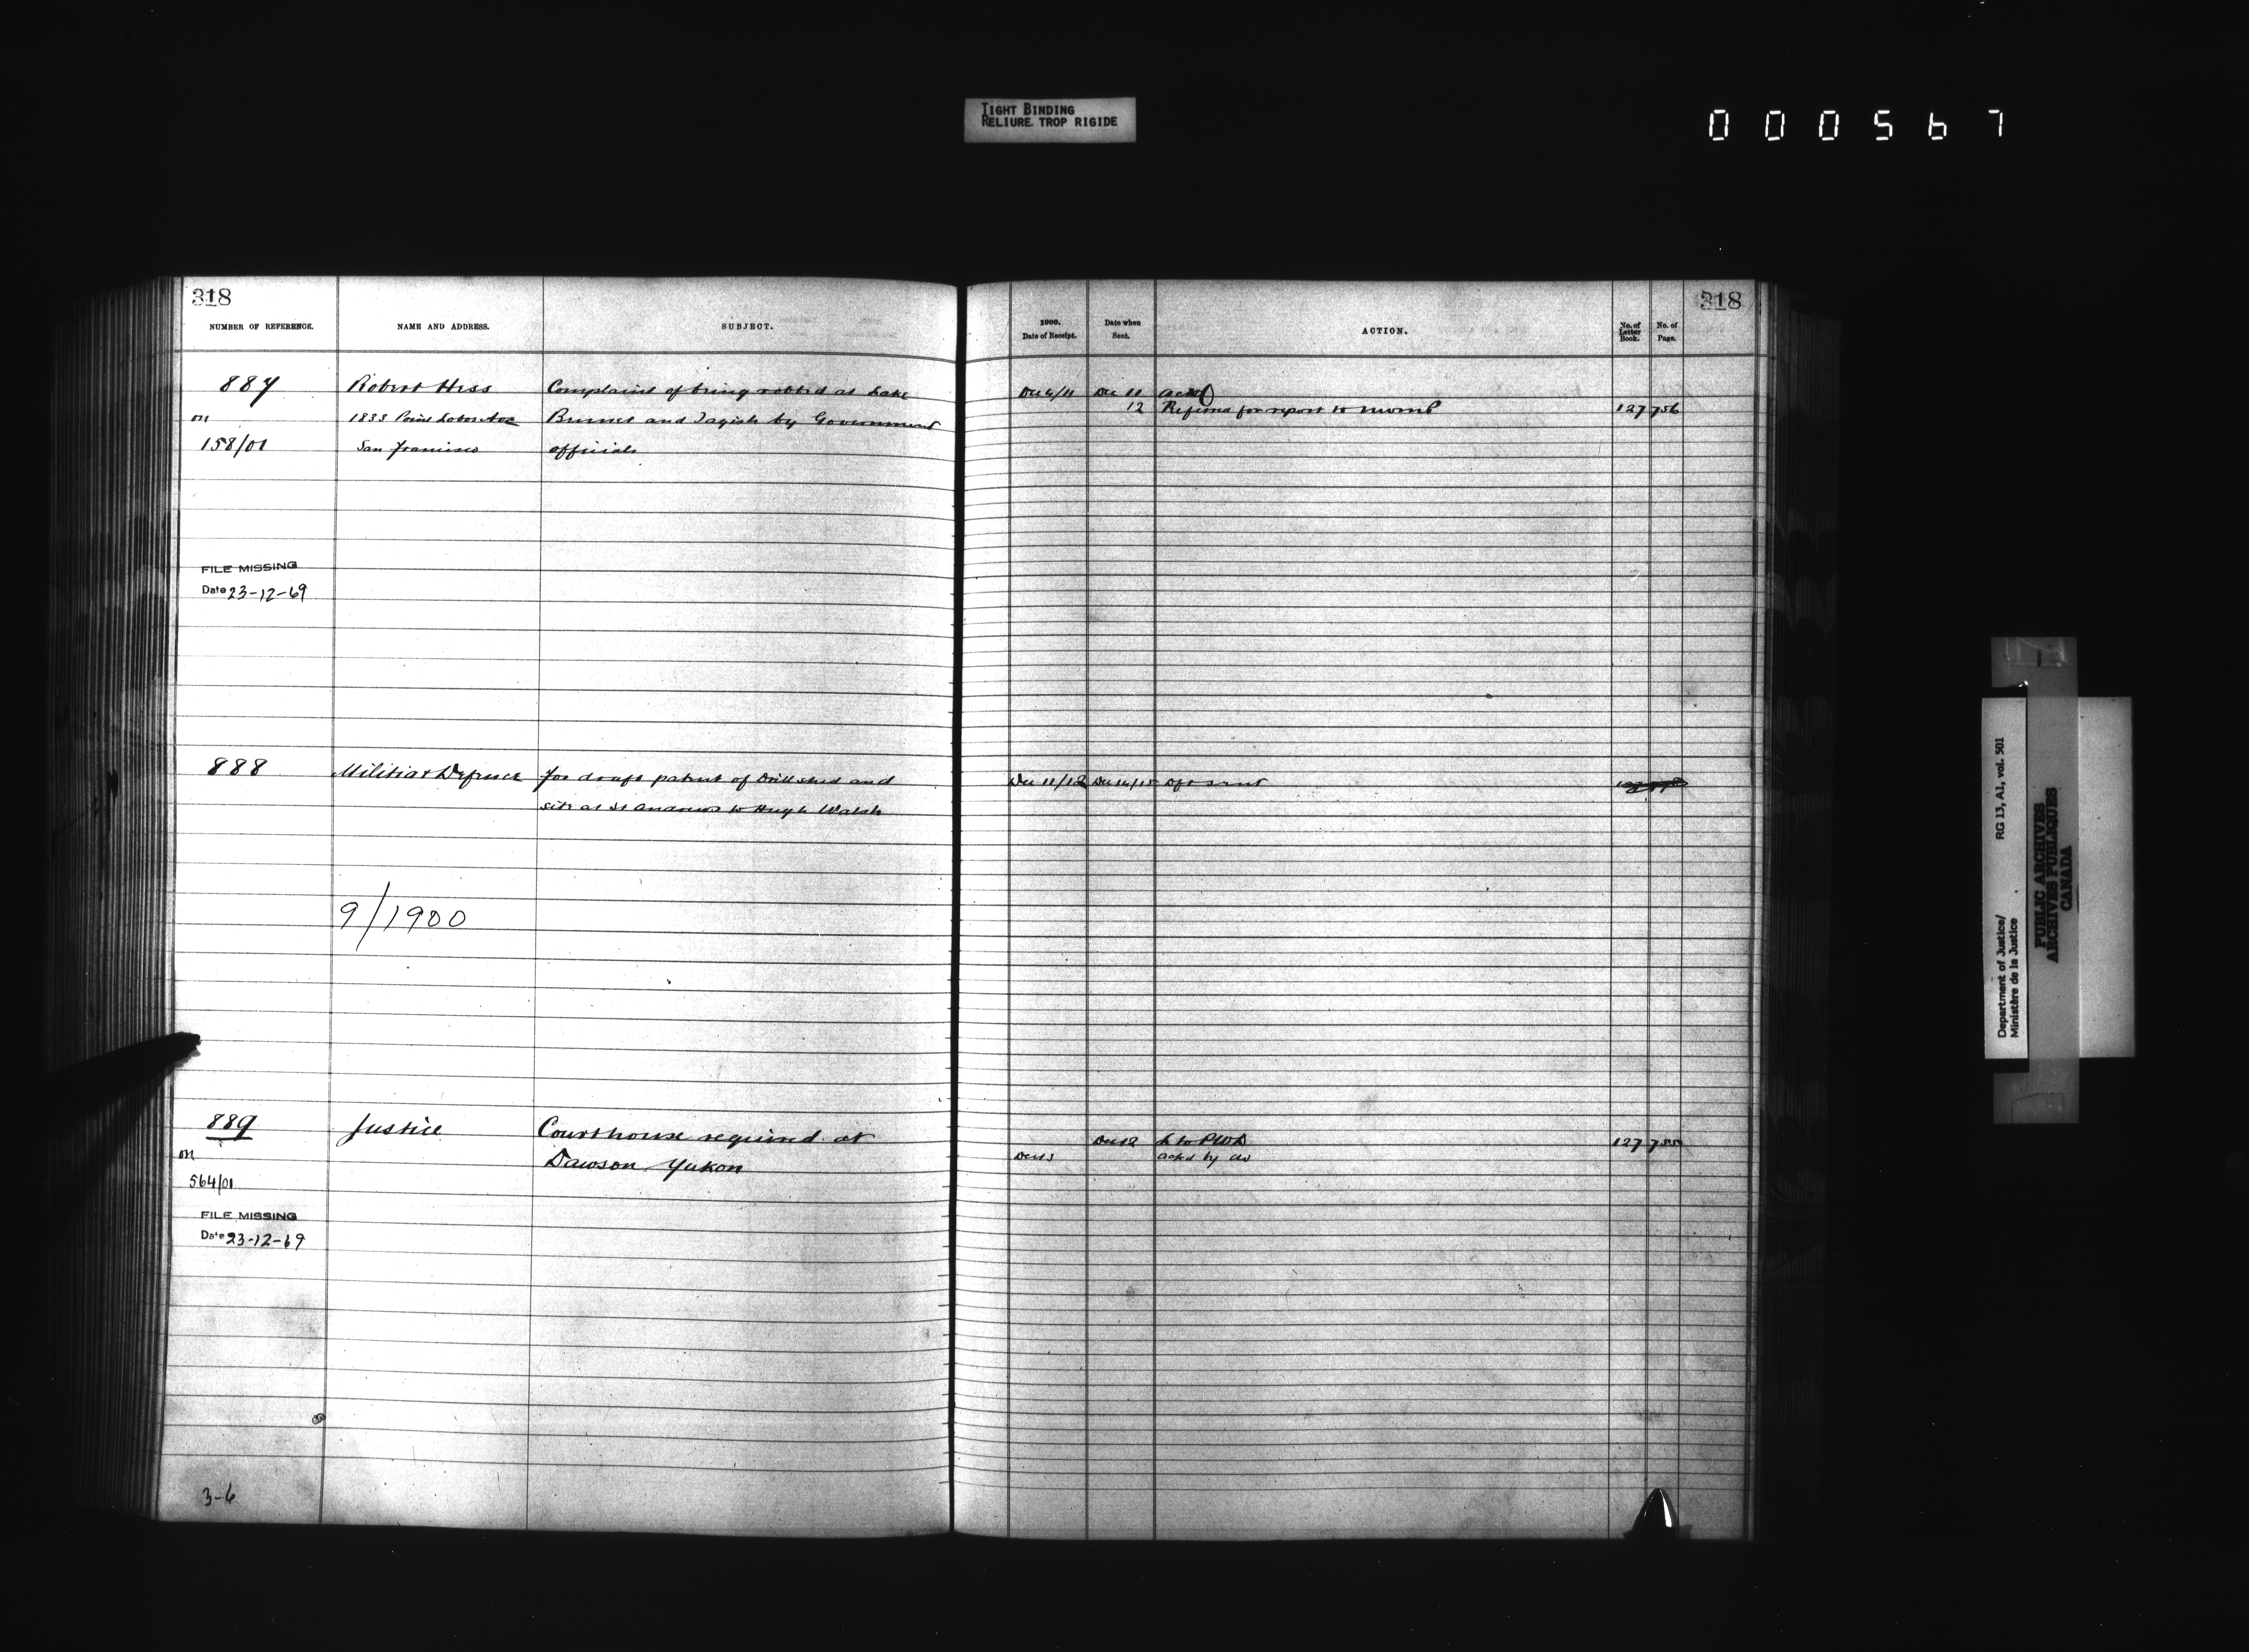 TIGHT BINDING
RELIURE TROP RIGIDE
000567
318
318
NUMBER OF REFERENCE.
NAME AND ADDRESS.
SUBJECT.
1900.
Date of Receipt.
Date when
Sent.
ACTION.
No. of
Letter
Book.
No. of
Page.
887 Robert Hess Complaint of being robbed at Lake
on 1833 Point Lobos Ave Bennet and Tagish by Government
158/01 San Francisco officials
Dec 6/11 Dec 11 ackd
12 Referred for report to 127 756
FILE MISSING
Date 23-12-69
888 Militia & Defence for draft patent of Drill shed and
site at St Andrews to Hugh Walsh
Dec 11/12 Dec 14/15 dft sent
9/1900
889 Justice Courthouse required at
on Dawson Yukon
564/01
Dec 12 L to PWD 127 755
Dec 13 ackd by do
FILE MISSING
Date 23-12-69
3-6
Department of Justice/
Ministère de la Justice
RG 13, A1, vol. 501
PUBLIC ARCHIVES
ARCHIVES PUBLIQUES
CANADA